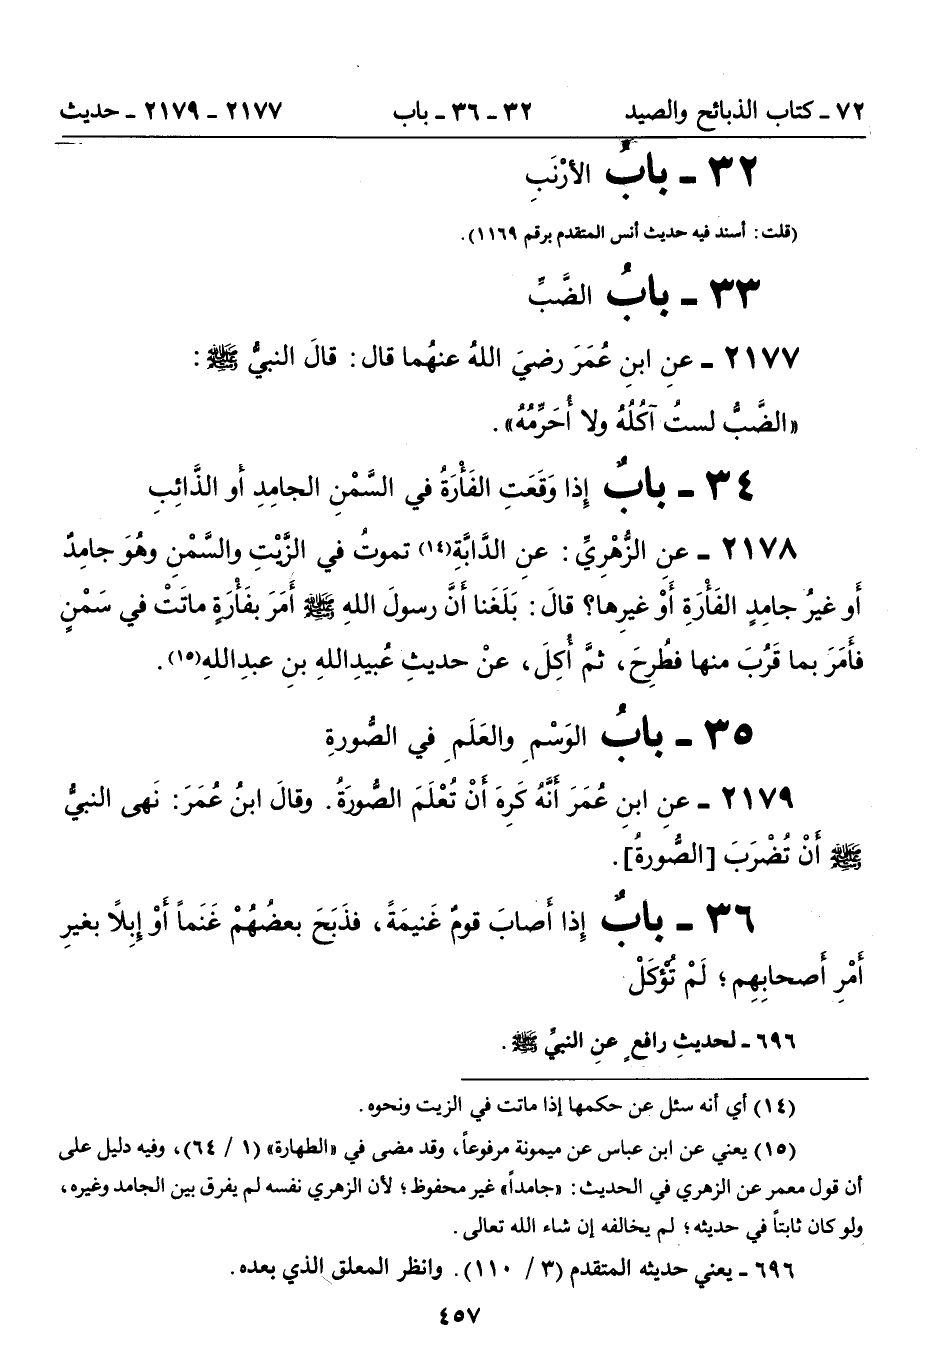 ٧٢ - كتاب الذبائح والصيد ٣٢ - ٣٦ - باب ٢١٧٧ - ٢١٧٩ - حديث
٣٢ - بابُ الأرْنَبِ
(قلت: أسند فيه حديث أنس المتقدم برقم ١١٦٩).
٣٣ - بابُ الضَّبِّ
٢١٧٧ - عنِ ابنِ عُمَرَ رضيَ اللهُ عنهُما قال: قالَ النبيُّ ﷺ:
«الضَّبُّ لستُ آكُلُهُ ولا أُحَرِّمُهُ».
٣٤ - بابٌ إذا وَقَعَتِ الفَأْرَةُ في السَّمْنِ الجامِدِ أو الذَّائِبِ
٢١٧٨ - عن الزُّهْرِيِّ: عنِ الدَّابَّةِ(١٤) تموتُ في الزَّيْتِ والسَّمْنِ وهُوَ جامِدٌ
أو غيرُ جامِدٍ الفَأْرَةِ أَوْ غيرِها؟ قالَ: بَلَغَنا أنَّ رسولَ اللهِ ﷺ أَمَرَ بفَأْرَةٍ ماتَتْ في سَمْنٍ
فأمَرَ بما قَرُبَ منها فطُرِحَ، ثمَّ أُكلَ، عنْ حديثِ عُبيدِاللهِ بنِ عبدِاللهِ(١٥).
٣٥ - بابُ الوَسْمِ والعَلَمِ في الصُّورةِ
٢١٧٩ - عنِ ابنِ عُمَرَ أَنَّهُ كَرِهَ أَنْ تُعْلَمَ الصُّورَةُ. وقالَ ابنُ عُمَرَ: نَهى النبيُّ
ﷺ أَنْ تُضْرَبَ [الصُّورةُ].
٣٦ - بابٌ إذا أَصابَ قومٌ غَنيمَةً، فذَبَحَ بعضُهُمْ غَنَماً أَوْ إِبلًا بغيرِ
أَمْرِ أَصحابِهِم؛ لَمْ تُؤْكَلْ
٦٩٦ - لحديثِ رافعٍ عنِ النبيِّ ﷺ.
(١٤) أي أنه سئل عن حكمها إذا ماتت في الزيت ونحوه.
(١٥) يعني عن ابن عباس عن ميمونة مرفوعاً، وقد مضى في «الطهارة» (١ / ٦٤)، وفيه دليل على
أن قول معمر عن الزهري في الحديث: «جامداً» غير محفوظ؛ لأن الزهري نفسه لم يفرق بين الجامد وغيره،
ولو كان ثابتاً في حديثه؛ لم يخالفه إن شاء الله تعالى.
٦٩٦ - يعني حديثه المتقدم (٣ / ١١٠). وانظر المعلق الذي بعده.
٤٥٧